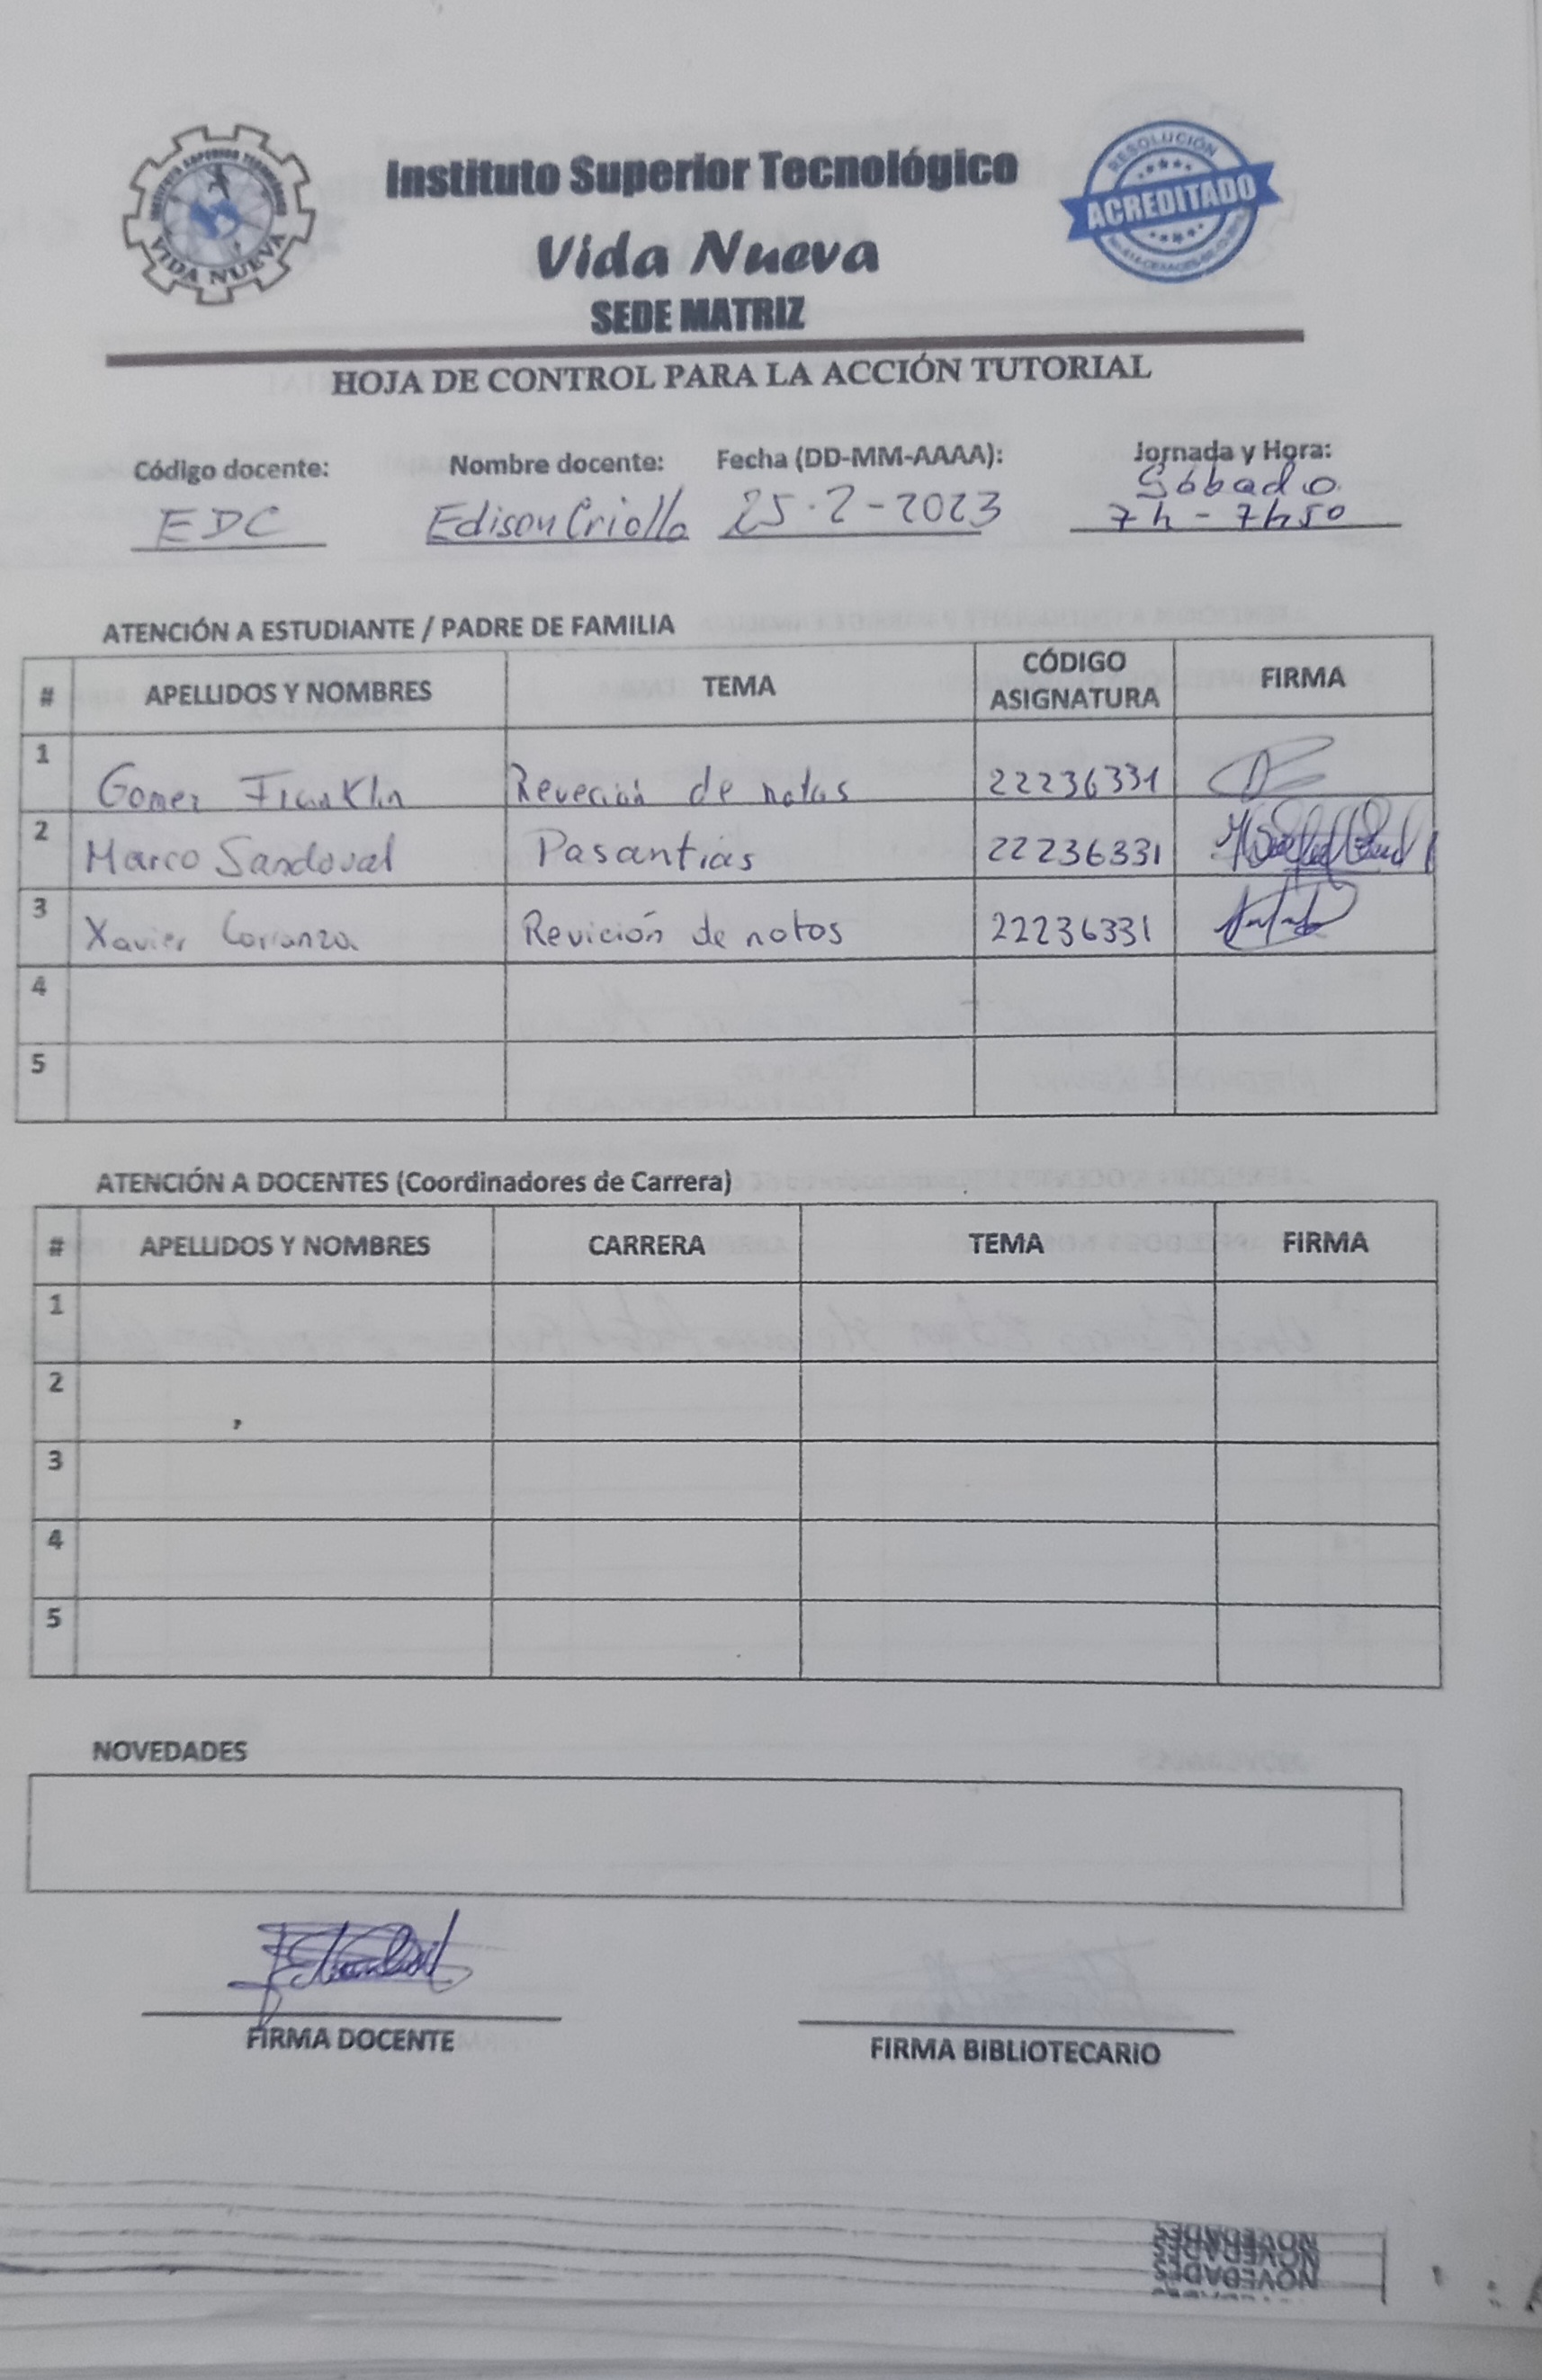 INSTITUTO SUPERIOR TECNOLÓGICO
VIDA NUEVA
Instituto Superior Tecnológico
Vida Nueva
SEDE MATRIZ
RESOLUCIÓN
ACREDITADO
HOJA DE CONTROL PARA LA ACCIÓN TUTORIAL
Código docente: Nombre docente: Fecha (DD-MM-AAAA): Jornada y Hora:
EDC Edison Criollo 25-2-2023 Sábado
7h - 7h50
ATENCIÓN A ESTUDIANTE / PADRE DE FAMILIA
# APELLIDOS Y NOMBRES TEMA CÓDIGO ASIGNATURA FIRMA
1 Gomez Franklin Reveción de notas 22236331
2 Marco Sandoval Pasantias 22236331
3 Xavier Carranza Revición de notas 22236331
4
5
ATENCIÓN A DOCENTES (Coordinadores de Carrera)
# APELLIDOS Y NOMBRES CARRERA TEMA FIRMA
1
2
3
4
5
NOVEDADES
FIRMA DOCENTE FIRMA BIBLIOTECARIO
NOVEDADES
NOVEDADES
NOVEDADES